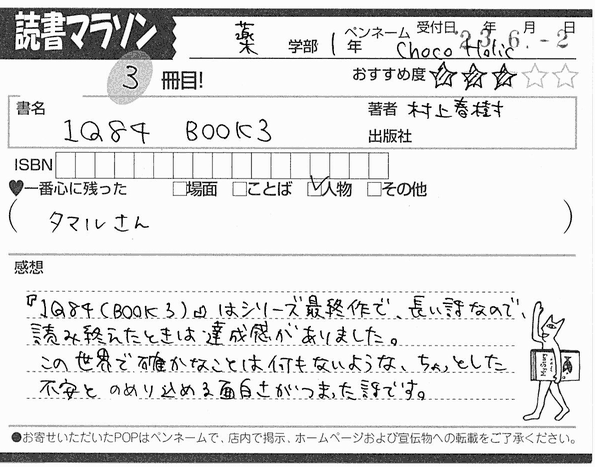 読書マラソン
薬 学部 1年 ペンネーム Choco Holic 受付日 年 月 日 '23.6.-2
3 冊目! おすすめ度 ★★★☆☆
書名 1Q84 BOOK3
著者 村上春樹
出版社
ISBN
♥一番心に残った □場面 □ことば ☑人物 □その他
( タマルさん )
感想
『1Q84(BOOK3)』はシリーズ最終作で、長い話なので、
読み終えたときは達成感がありました。
この世界で確かなことは何もないような、ちょっとした
不安と のめり込める面白さがつまった話です。
●お寄せいただいたPOPはペンネームで、店内で掲示、ホームページおよび宣伝物への転載をご了承ください。